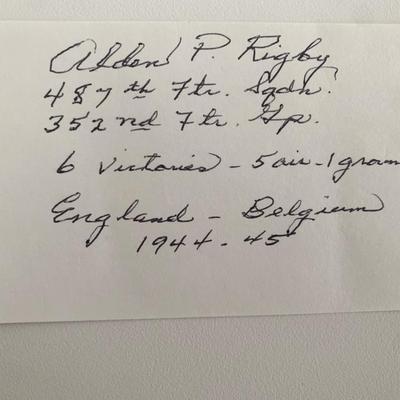 Alden P. Rigby
487th Ftr. Sqdn.
352nd Ftr. Gp.
6 Victories - 5 air - 1 groun
England - Belgium
1944 - 45